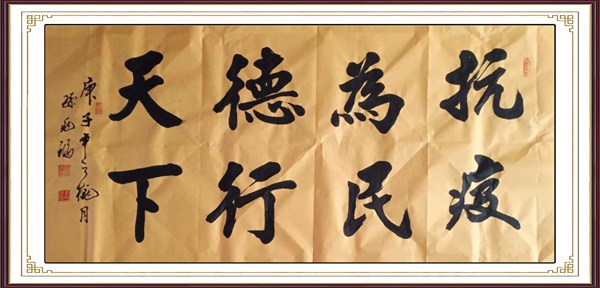 抗疫
為民
德行
天下
庚子年之月